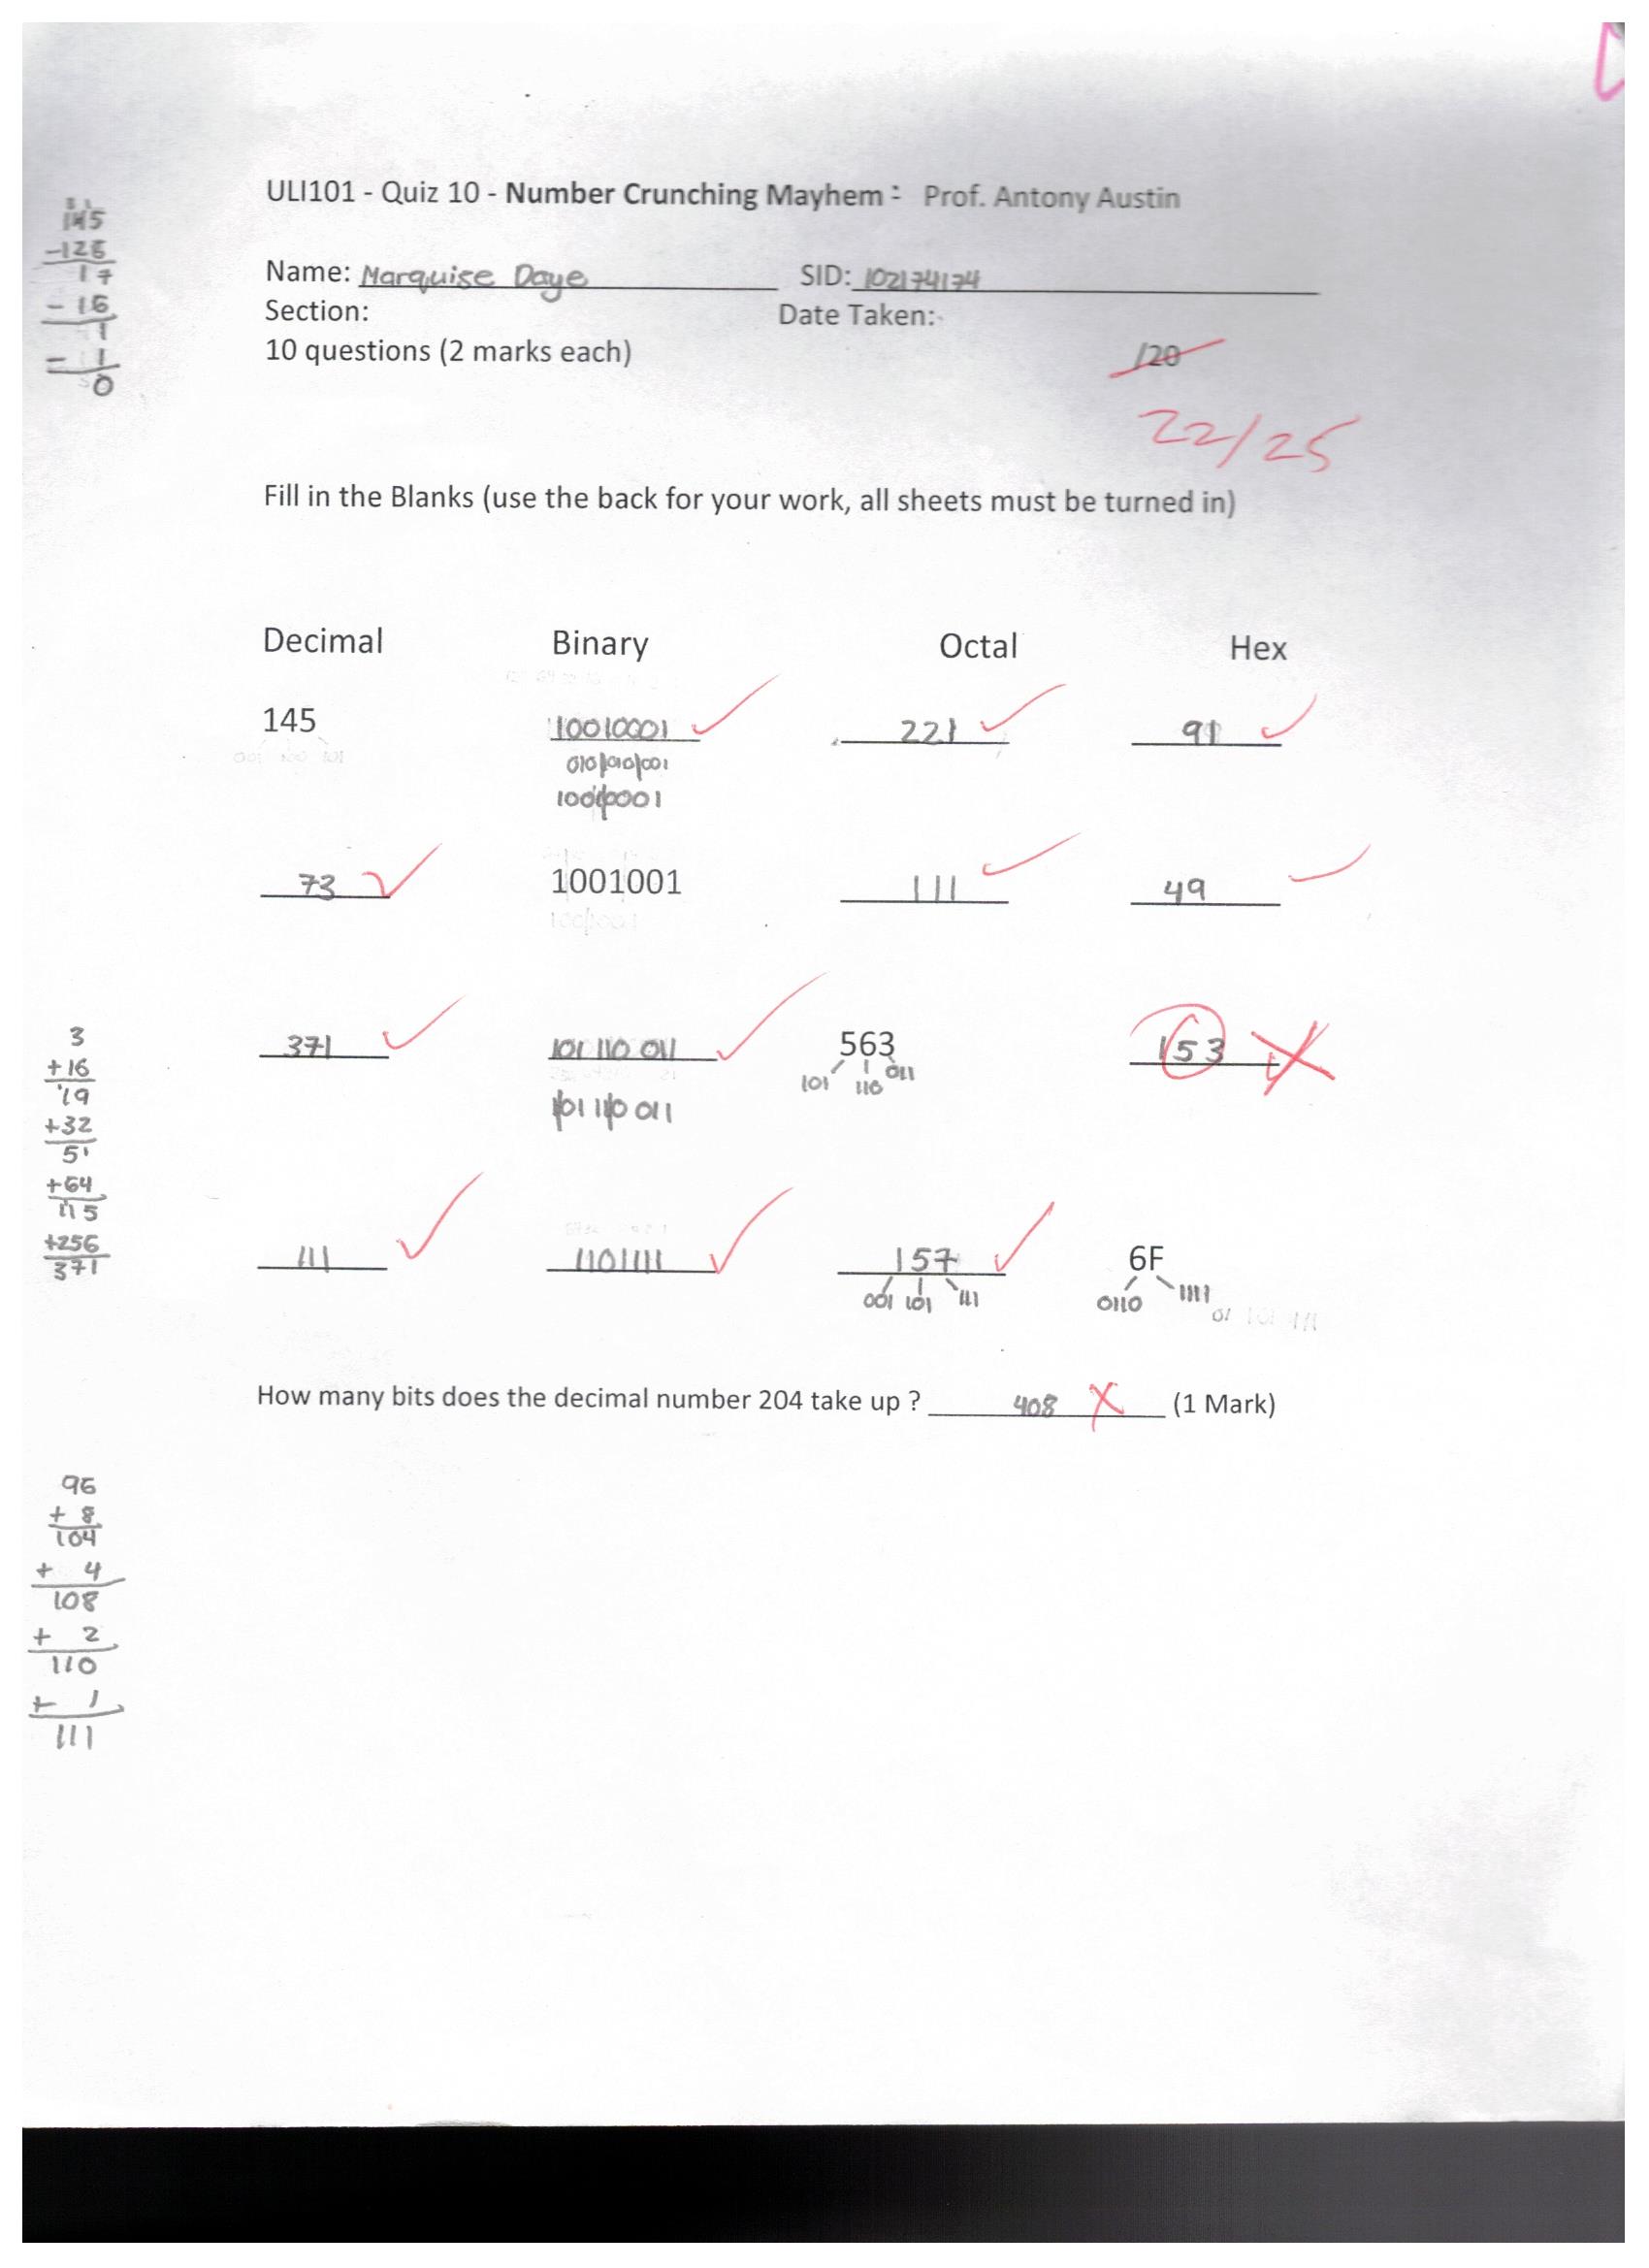 ULI101 - Quiz 10 - Number Crunching Mayhem : Prof. Antony Austin
145
-128
17
- 16
1
- 1
0
Name: Marquise Daye SID: 102174174
Section: Date Taken:
10 questions (2 marks each) /20
22/25
Fill in the Blanks (use the back for your work, all sheets must be turned in)
Decimal Binary Octal Hex
145 10010001 221 91
010|010|001
1001|0001
73 1001001 111 49
371 101 110 011 563 153
101 110 011
101 110 011
3
+16
19
+32
51
+64
115
+256
371
111 1101111 157 6F
001 101 111 0110 1111
How many bits does the decimal number 204 take up ? 408 (1 Mark)
96
+ 8
104
+ 4
108
+ 2
110
+ 1
111